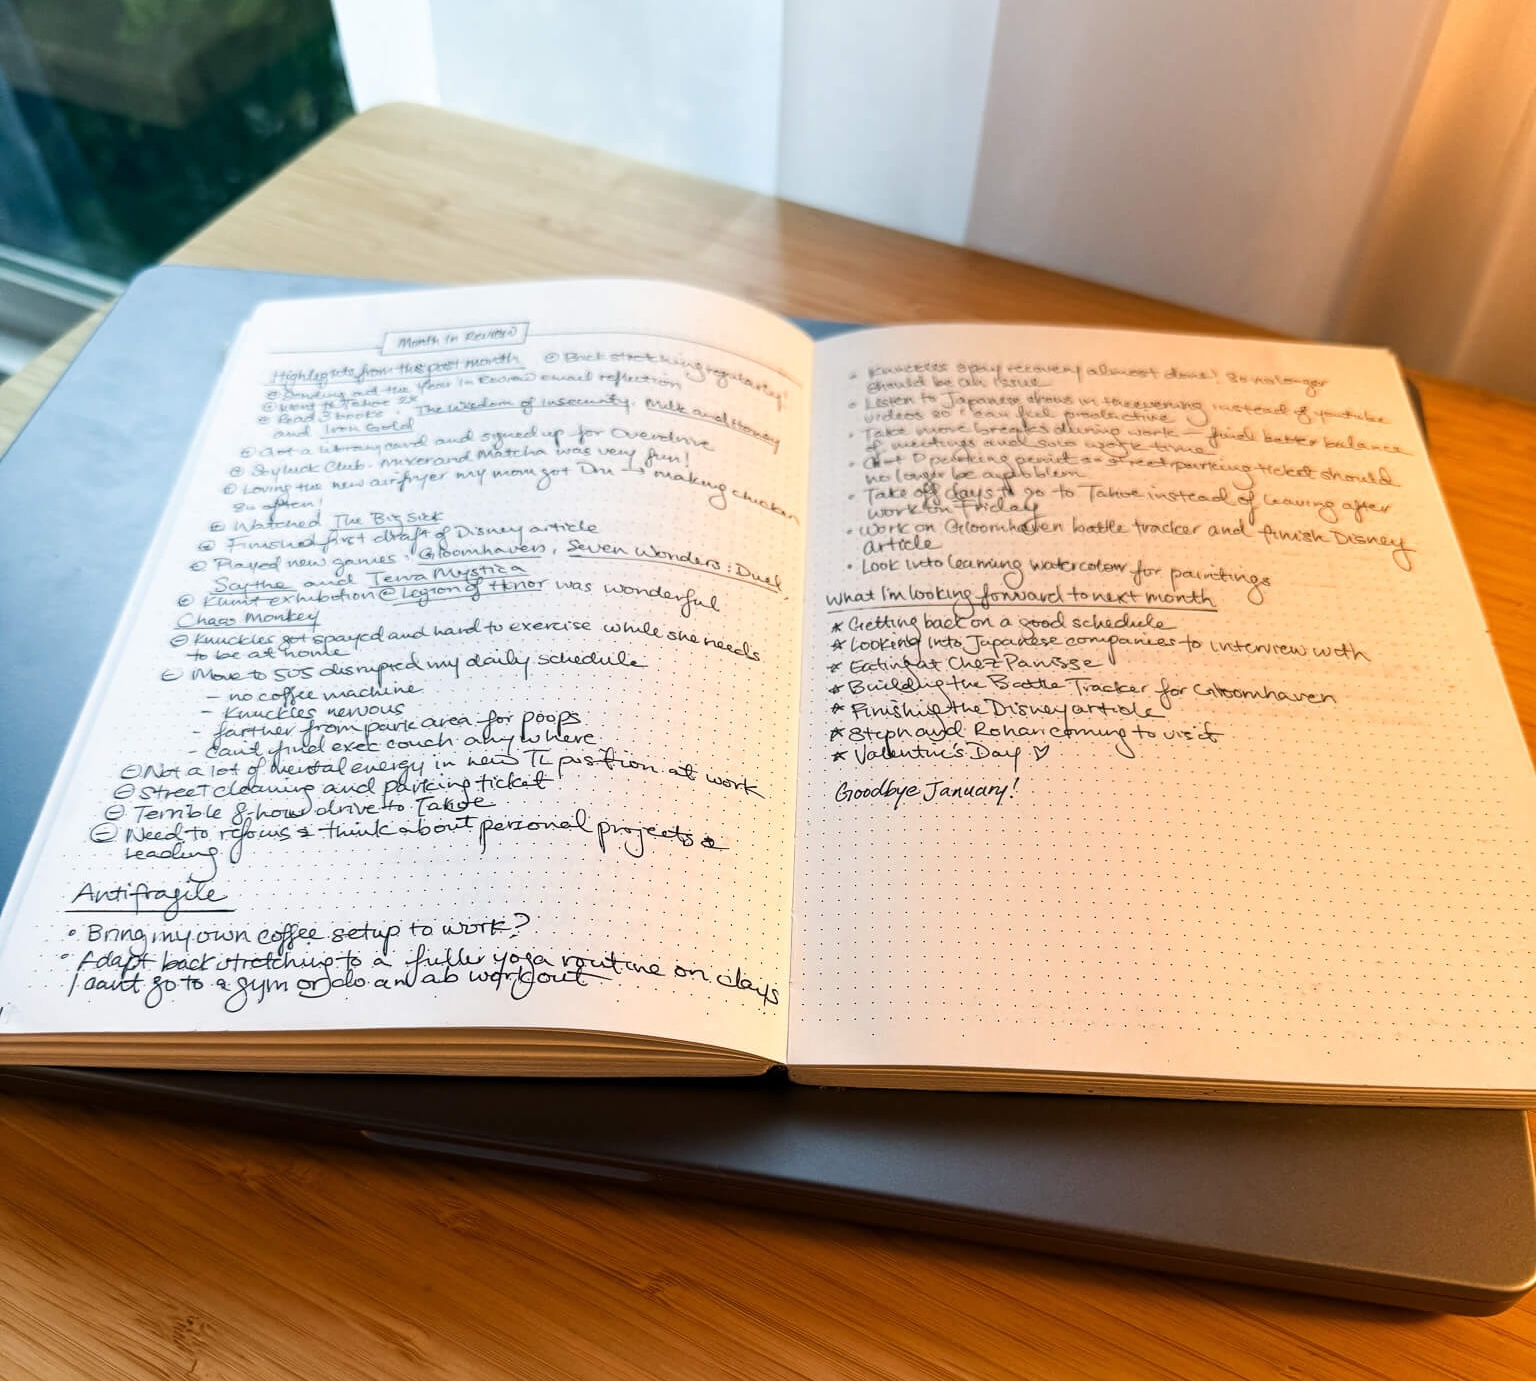 Month in Review
Highlights from the past month
⊕ Back stretching regularly!
⊕ Sending out the Year in Review email reflection
⊕ Went to Tahoe 2x
⊕ Read 3 books: The Wisdom of Insecurity, Milk and Honey
and Iron Gold
⊕ Got a library card and signed up for Overdrive
⊕ Skyluck Club. Mixer and Matcha was very fun!
⊕ Loving the new airfryer my mom got → making chicken
so often!
⊕ Watched The Big Sick
⊕ Finished first draft of Disney article
⊕ Played new games: Gloomhaven, Seven Wonders: Duel,
Scythe and Terra Mystica
⊕ Klimt exhibition @ Legion of Honor was wonderful
Chaos Monkey
⊖ Knuckles got spayed and hard to exercise while she needs
to be at home
⊖ Move to 505 disrupted my daily schedule
– no coffee machine
– Knuckles nervous
– farther from park area for poops
– can't find exec couch anywhere
⊖ Not a lot of mental energy in new TL position at work
⊖ Street cleaning and parking ticket
⊖ Terrible 8 hour drive to Tahoe
⊖ Need to refocus & think about personal projects &
reading
Antifragile
• Bring my own coffee setup to work?
• Adapt back stretching to a fuller yoga routine on days
I can't go to a gym or do an ab workout
• Knuckles spay recovery almost done! So no longer
should be an issue
• Listen to Japanese shows in the evening instead of youtube
videos so I can feel productive
• Take more breaks during work – find better balance
of meetings and solo work time
• Got D parking permit so street parking ticket should
no longer be a problem
• Take off days to go to Tahoe instead of leaving after
work on Friday
• Work on Gloomhaven battle tracker and finish Disney
article
• Look into learning watercolour for paintings
What I'm looking forward to next month
* Getting back on a good schedule
* Looking into Japanese companies to interview with
* Eating at Chez Panisse
* Building the Battle Tracker for Gloomhaven
* Finishing the Disney article
* Steph and Rohan coming to visit
* Valentine's Day ♡
Goodbye January!